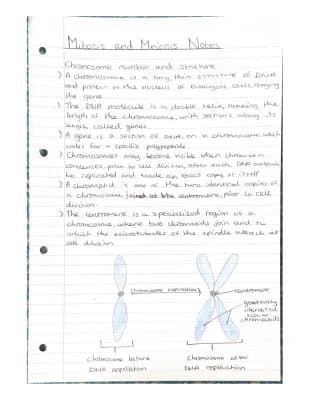 Mitosis and Meiosis Notes
Chromosome number and structure
) A chromosome is a long, thin structure of DNA
and protein in the nucleus of eukaryotic cells, carrying
the gene.
) The DNA molecule is a double helix, running the
length of the chromosome, with sections along its
length called genes.
) A gene is a section of DNA, on a chromosome which
codes for a specific polypeptide.
) Chromosomes only become visible when chromatin
condenses, prior to cell division, after each DNA molecule
has replicated and made an exact copy of itself
) A chromatid is one of the two identical copies of
a chromosome joined at the centromere, prior to cell
division
) The centromere is a specialised region of a
chromosome, where two chromatids join and to
which the microtubules of the spindle attach at
cell division
Chromosome replication
centromere
genetically
identical
sister
chromatids
Chromosome before
DNA replication
Chromosome after
DNA replication